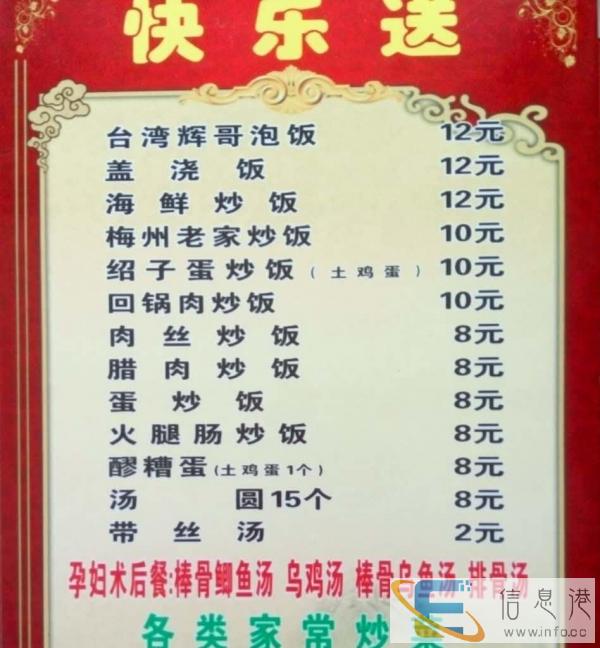 快乐送
台湾辉哥泡饭 12元
盖浇饭 12元
海鲜炒饭 12元
梅州老家炒饭 10元
绍子蛋炒饭（土鸡蛋） 10元
回锅肉炒饭 10元
肉丝炒饭 8元
腊肉炒饭 8元
蛋炒饭 8元
火腿肠炒饭 8元
醪糟蛋(土鸡蛋1个) 8元
汤圆15个 8元
带丝汤 2元
孕妇术后餐:棒骨鲫鱼汤 乌鸡汤 棒骨乌鱼汤 排骨汤
各类家常炒菜
信息港
www.info.cc